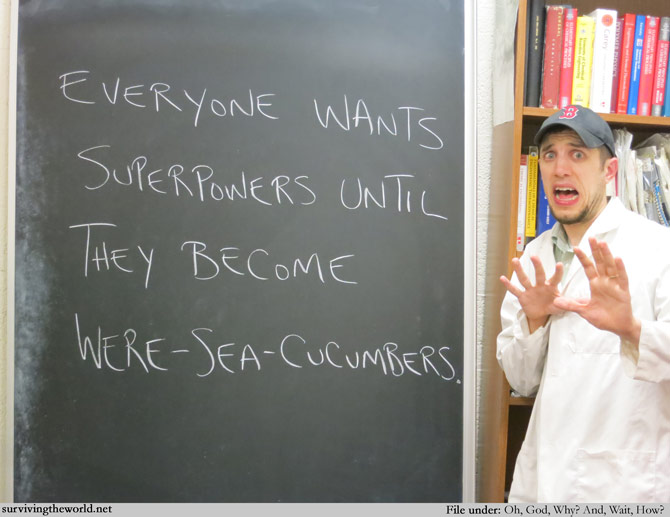 EVERYONE WANTS
SUPERPOWERS UNTIL
THEY BECOME
WERE-SEA-CUCUMBERS.
B
Carey
survivingtheworld.net
File under: Oh, God, Why? And, Wait, How?